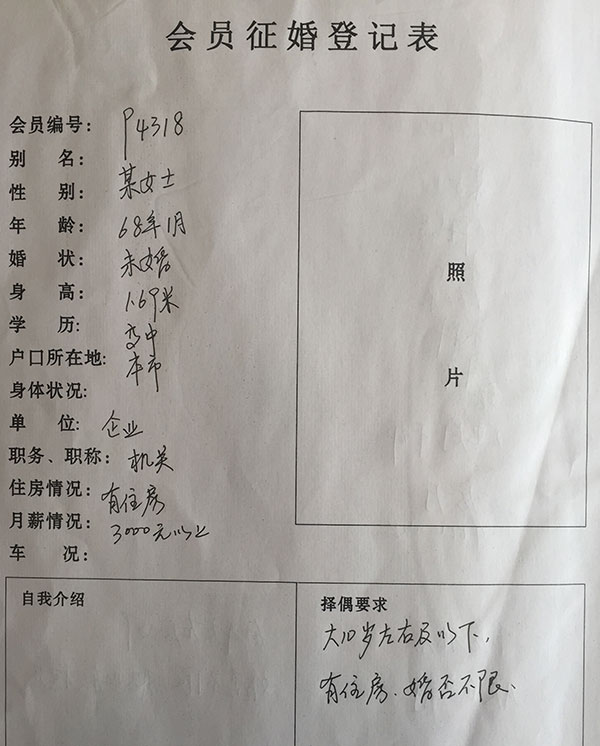 会员征婚登记表
会员编号: P4318
别 名: 某女士
性 别:
年 龄: 68年1月
婚 状: 未婚
身 高: 1.69米
学 历: 高中
户口所在地: 本市
身体状况:
单 位: 企业
职务、职称: 机关
住房情况: 有住房
月薪情况: 3000元以上
车 况:
照
片
自我介绍
择偶要求
大10岁左右及以下,
有住房、婚否不限、